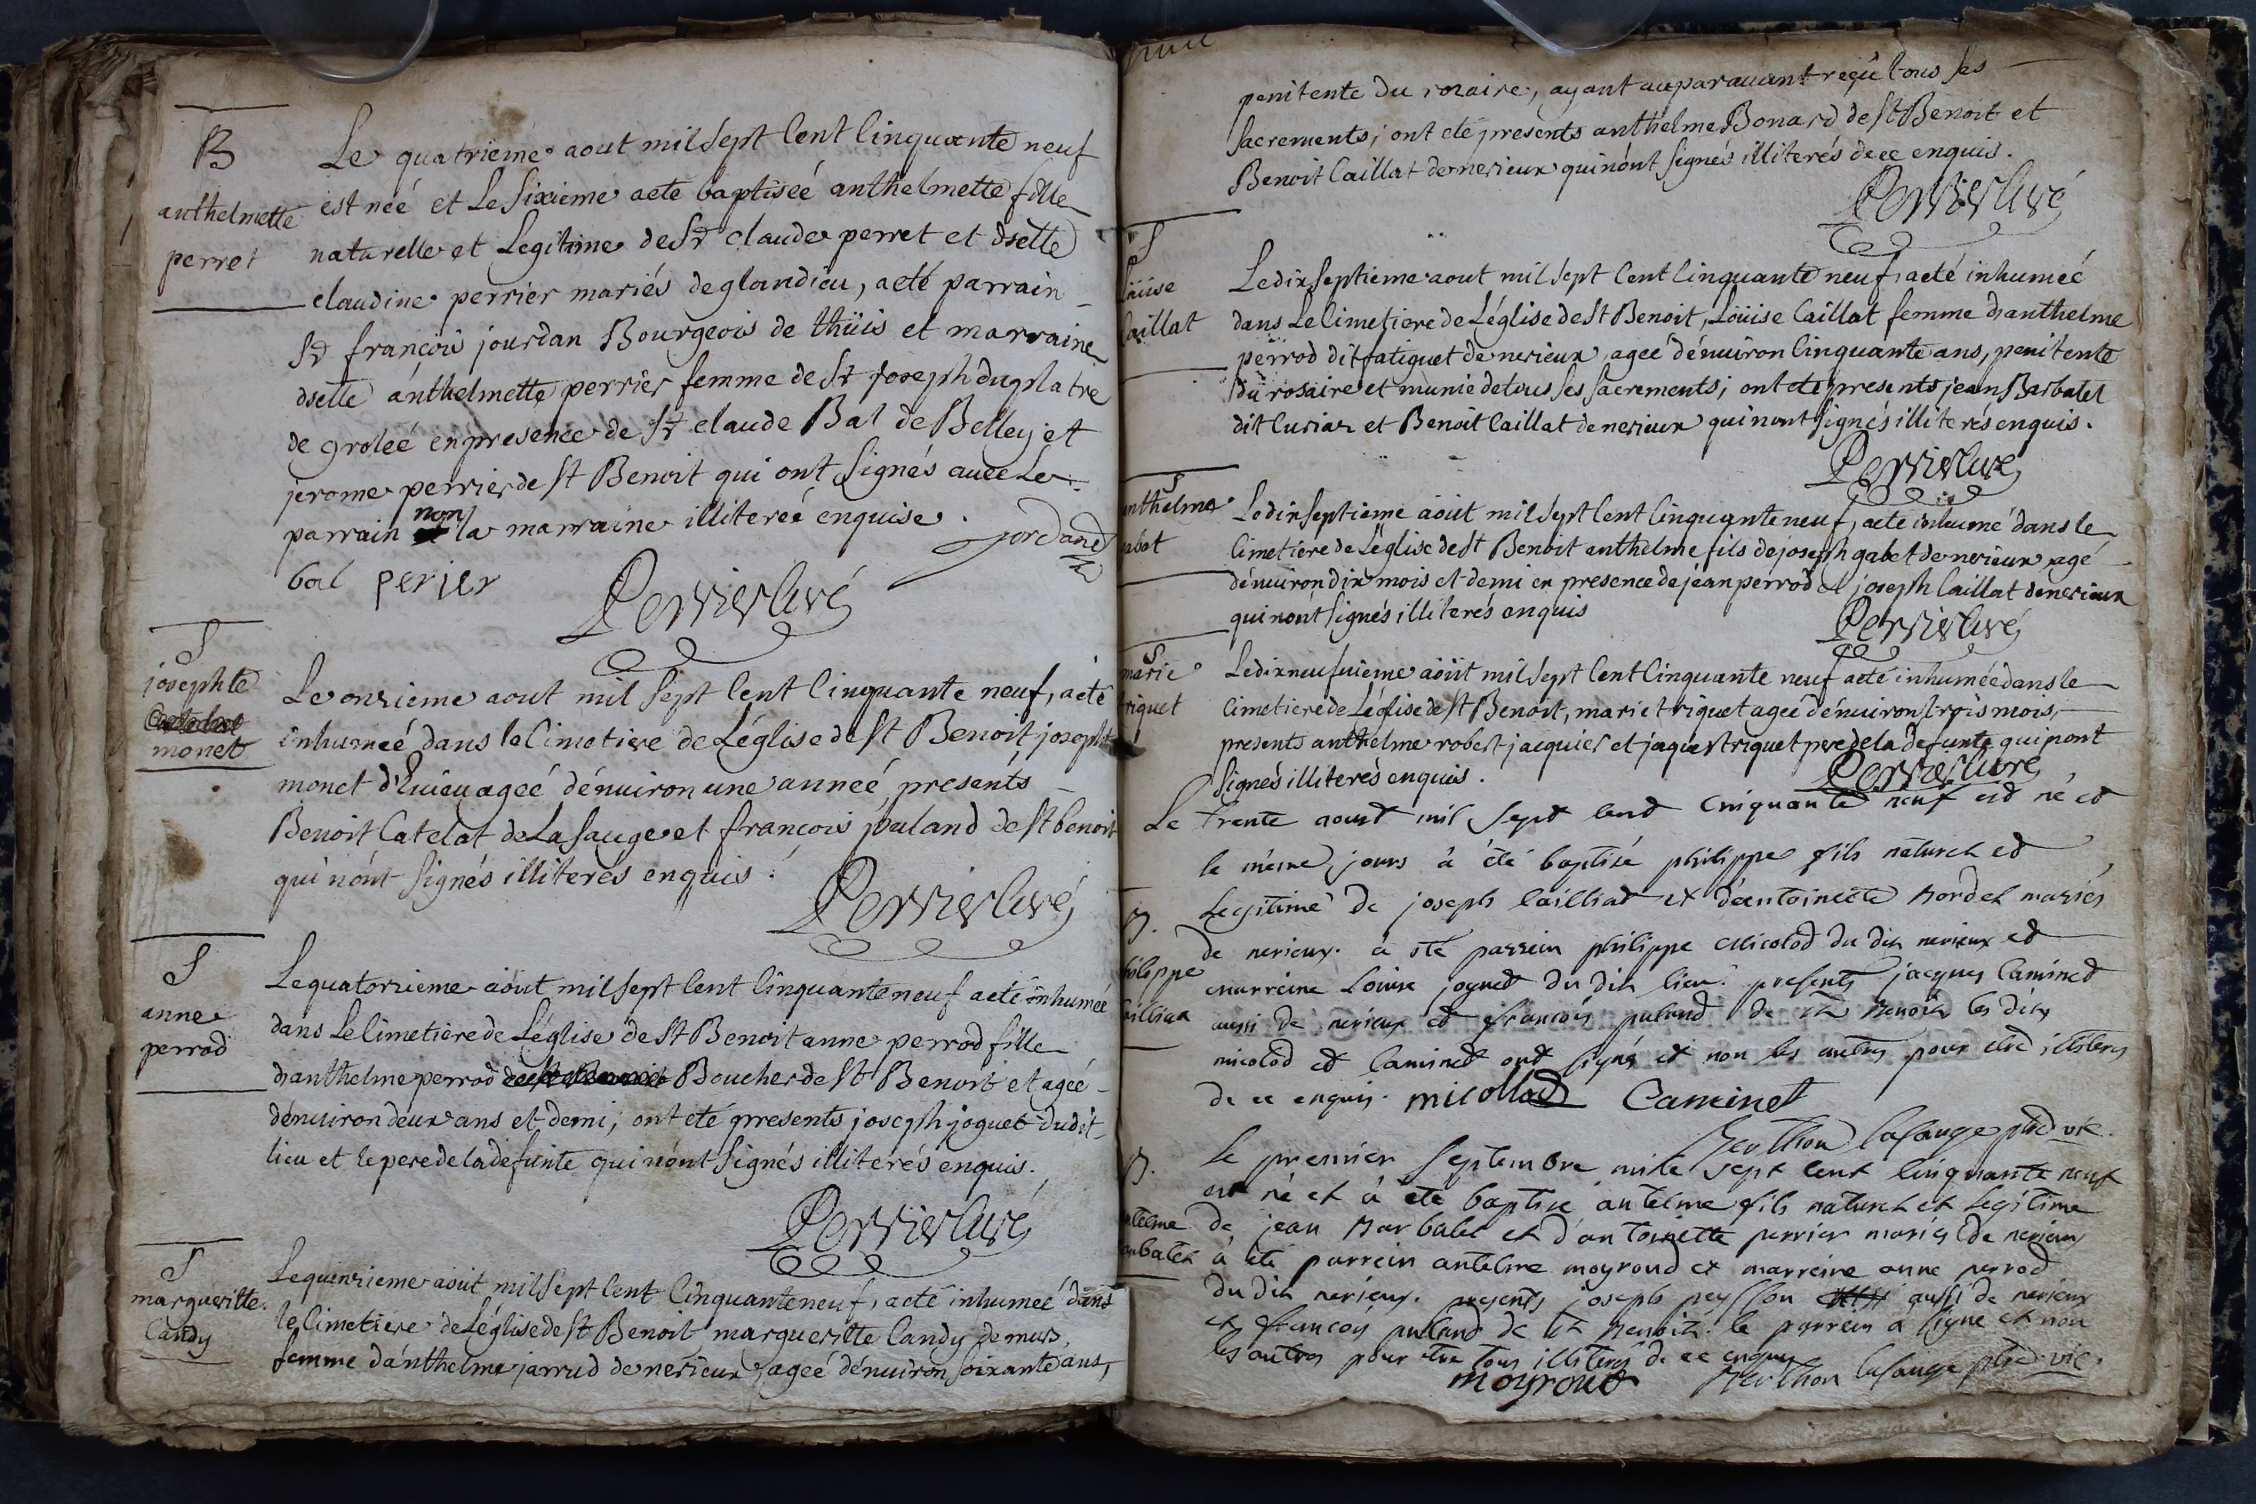 B
anthelmette
perret
Le quatrieme aout mil sept Cent Cinquante neuf
est neé et Le Sixieme aeté baptiseé anthelmette fille
naturelle et Legitime de Sr claude perret et dselle
claudine perrier mariés de glandieu, aeté parrain
Sr françois jourdan Bourgeois de thüis et marraine
dselle anthelmette perrier femme de Sr joseph dugplatre
de groleé en presence de Sr claude Bal de Belley et
jerome perrier de St Benoit qui ont Signés avec Le
parrain non la marraine illitereé enquise.
jordand
bal perier
Perrier Curé
S
josephte
monet
Le onzieme aout mil Sept Cent Cinquante neuf, aeté
inhumeé dans le Cimetiere de L'église de St Benoit josephte
monet d'Evieu ageé d'énuiron une anneé, presents
Benoit Catelat de La Sauge et françois puland de St benoit
qui n'ónt Signés illiterés enquis.
Perrier Curé
S
anne
perrod
Le quatorzieme aóut mil sept Cent Cinquante neuf aeté inhumeé
dans Le Cimetiere de L'église de St Benoit anne perrod fille
d'anthelme perrod Boucher de St Benoit et ageé
d'énuiron deux ans et demi; ont eté presents joseph joguet dudit
lieu et le pere de la defunte qui n'ónt Signés illiterés enquis.
Perrier Curé
S
margueritte
Candy
Le quinzieme aóut mil Sept Cent Cinquante neuf, aeté inhumeé dans
le Cimetiere de L'église de St Benoit margueritte Candy de murs,
femme d'anthelme jarrud de nerieux, ageé d'énuiron soixante ans,
penitente du rozaire, ayant auparauant reçu tous ses
Sacrements; ont eté presents anthelme Bonard de St Benoit et
Benoit Caillat de nerieux qui n'ónt Signés illiterés de ce enquis.
Perrier Curé
S
Loüise
Caillat
Le dix septieme aout mil sept Cent Cinquante neuf, aeté inhumeé
dans Le Cimetiere de L'église de St Benoit, Loüise Caillat femme d'anthelme
perrod dit fatiguet de nerieux, ageé d'énuiron Cinquante ans, penitente
du rosaire et munie de tous ses sacrements; ont eté presents jean Barbatel
dit Curiaz et Benoit Caillat de nerieux qui n'ont Signés illiterés enquis.
Perrier Curé
S
anthelme
gabet
Le dix Septieme aóut mil Sept Cent Cinquante neuf, aeté inhumé dans le
Cimetiere de L'église de St Benoit anthelme fils de joseph gabet de nerieux agé
d'énuiron dix mois et demi en presence de jean perrod et joseph Caillat de nerieux
qui n'ónt Signés illiterés enquis
Perrier Curé
S
marie
triquet
Le dix neufuieme aóut mil Sept Cent Cinquante neuf aeté inhumée dans le
Cimetiere de L'église de St Benoit, marie triquet ageé d'énuiron trois mois,
presents anthelme robert jacquier et jaques triquet pere de la defunte qui n'ont
Signés illiterés enquis.
Perrier Curé
B.
philippe
Cailliat
Le trente aoust mil Sept Cent Cinquante neuf est né et
le même jours à été baptisé philippe fils naturel et
Legitime de joseph Cailliat et d'antoinette Bordel mariés
de nerieux. a été parrein philippe Micolod du dit nerieux et
marreine Louise joguet du dit lieu. presents jacques Caminet
aussi de nerieux et françois puland de St Benoit les dits
micolod et Caminet ont signé et non les autres pour être illiterés
de ce enquis.
micollod Caminet
Berthon Lasauge ptre vic.
B.
antelme
barbatet
Le premier Septembre mile sept Cent Cinquante neuf
est né et à été baptise antelme fils naturel et Legitime
de jean Barbatel et d'antoinette perrier mariés de nerieux
à été parrein antelme moyroud et marreine anne perrod
du dit nerieux. presents joseph peysson aussi de nerieux
et françois puland de St Benoit. le parrein a signe et non
les autres pour etre tous illiterés de ce enquis
moyroud Berthon Lasauge ptre vic.